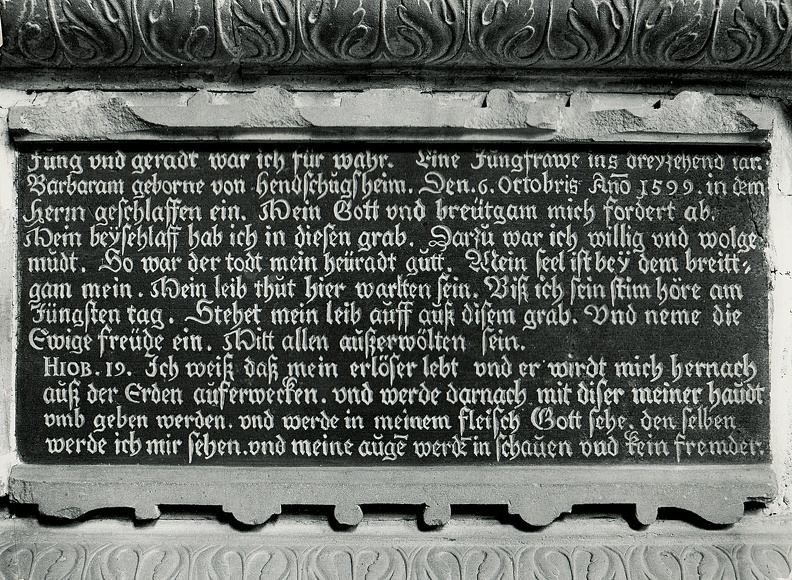 Jung vnd geradt war ich für wahr. Eine Jungfrawe ins dreyzehend iar.
Barbaram geborne von Hendschugsheim. Den. 6. Octobris Año 1599. in dem
Herrn geschlaffen ein. Mein Gott vnd breütgam mich fordert ab.
Mein beÿschlaff hab ich in diesen grab. Darzu war ich willig vnd wolge
mudt. So war der todt mein heüradt gutt. Mein seel ist beÿ dem breitt=
gam mein. Mein leib thut hier wartten sein. Biß ich sein stim höre am
Jüngsten tag. Stehet mein leib auff auß disem grab. Vnd neme die
Ewige freüde ein. Mitt allen außerwölten sein.
HIOB. 19. Ich weiß daß mein erlöser lebt vnd er wirdt mich hernach
auß der Erden auferwecken. vnd werde darnach mit diser meiner haudt
vmb geben werden. vnd werde in meinem fleisch Gott sehe. den selben
werde ich mir sehen. vnd meine augē werdē in schauen vnd kein fremder.